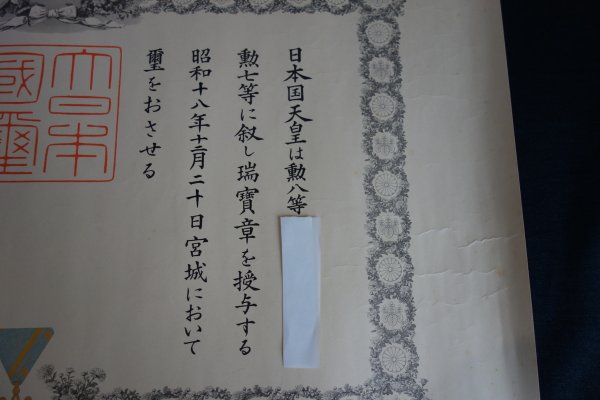 日本国天皇は勲八等
勲七等に叙し瑞寶章を授与する
昭和十八年十二月二十日宮城において
璽をおさせる
大日本
國璽